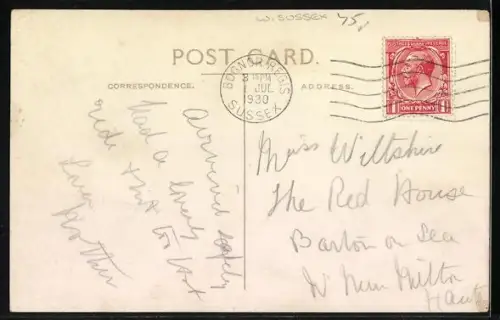 W. SUSSEX 75
POST CARD.
CORRESPONDENCE.
ADDRESS.
BOGNOR REGIS
3 PM
1 JUL
1930
SUSSEX
ONE PENNY
arrived safely
had a lovely
ride & not too hot
Love
Mother
Miss Wiltshire
The Red House
Barton on Sea
Nr New Milton
Hants